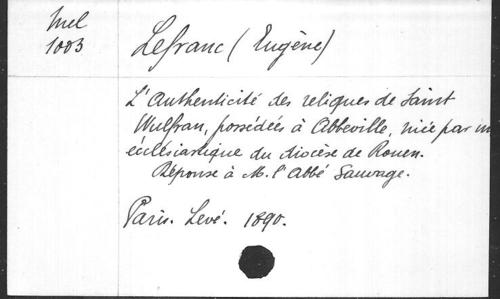 Mel
1003
Lefranc (Eugène)
L'Authenticité des reliques de Saint
Wulfran, possédées à Abbeville, niée par un
écclésiastique du diocèse de Rouen.
Réponse à M. l'Abbé Sauvage.
Paris. Levé. 1890.